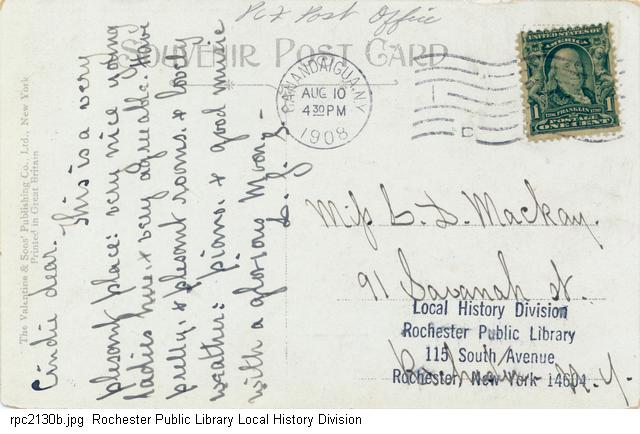 Pcx Post Office
SOUVENIR POST CARD
The Valentine & Sons' Publishing Co., Ltd., New York
Printed in Great Britain
dear.
This is a very
plesant place: very nice young
ladies here & very agreeable. Have
pretty, & plesant rooms. & lovely
weather: piano. & good music
with a glorious Moon. -
CANANDAIGUA, N.Y.
AUG 10
4 30 PM
1908
UNITED STATES OF
AMERICA
1 FRANKLIN 1
POSTAGE
ONE CENT
Miss L. L. Mackay.
91 Savanah St.
N.Y.
Local History Division
Rochester Public Library
115 South Avenue
Rochester, New York 14604
rpc2130b.jpg Rochester Public Library Local History Division